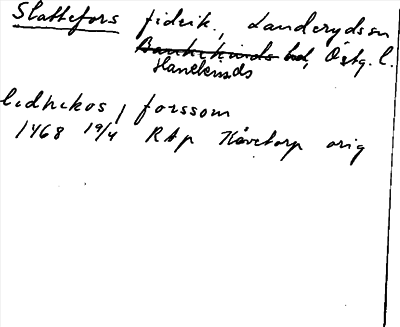 Slattefors fideik., Landerydssn
Bankekinds hd, Östg. l.
Hanekinds
ledhekos, forssom
1468 19/4 RAp Kåretorp orig